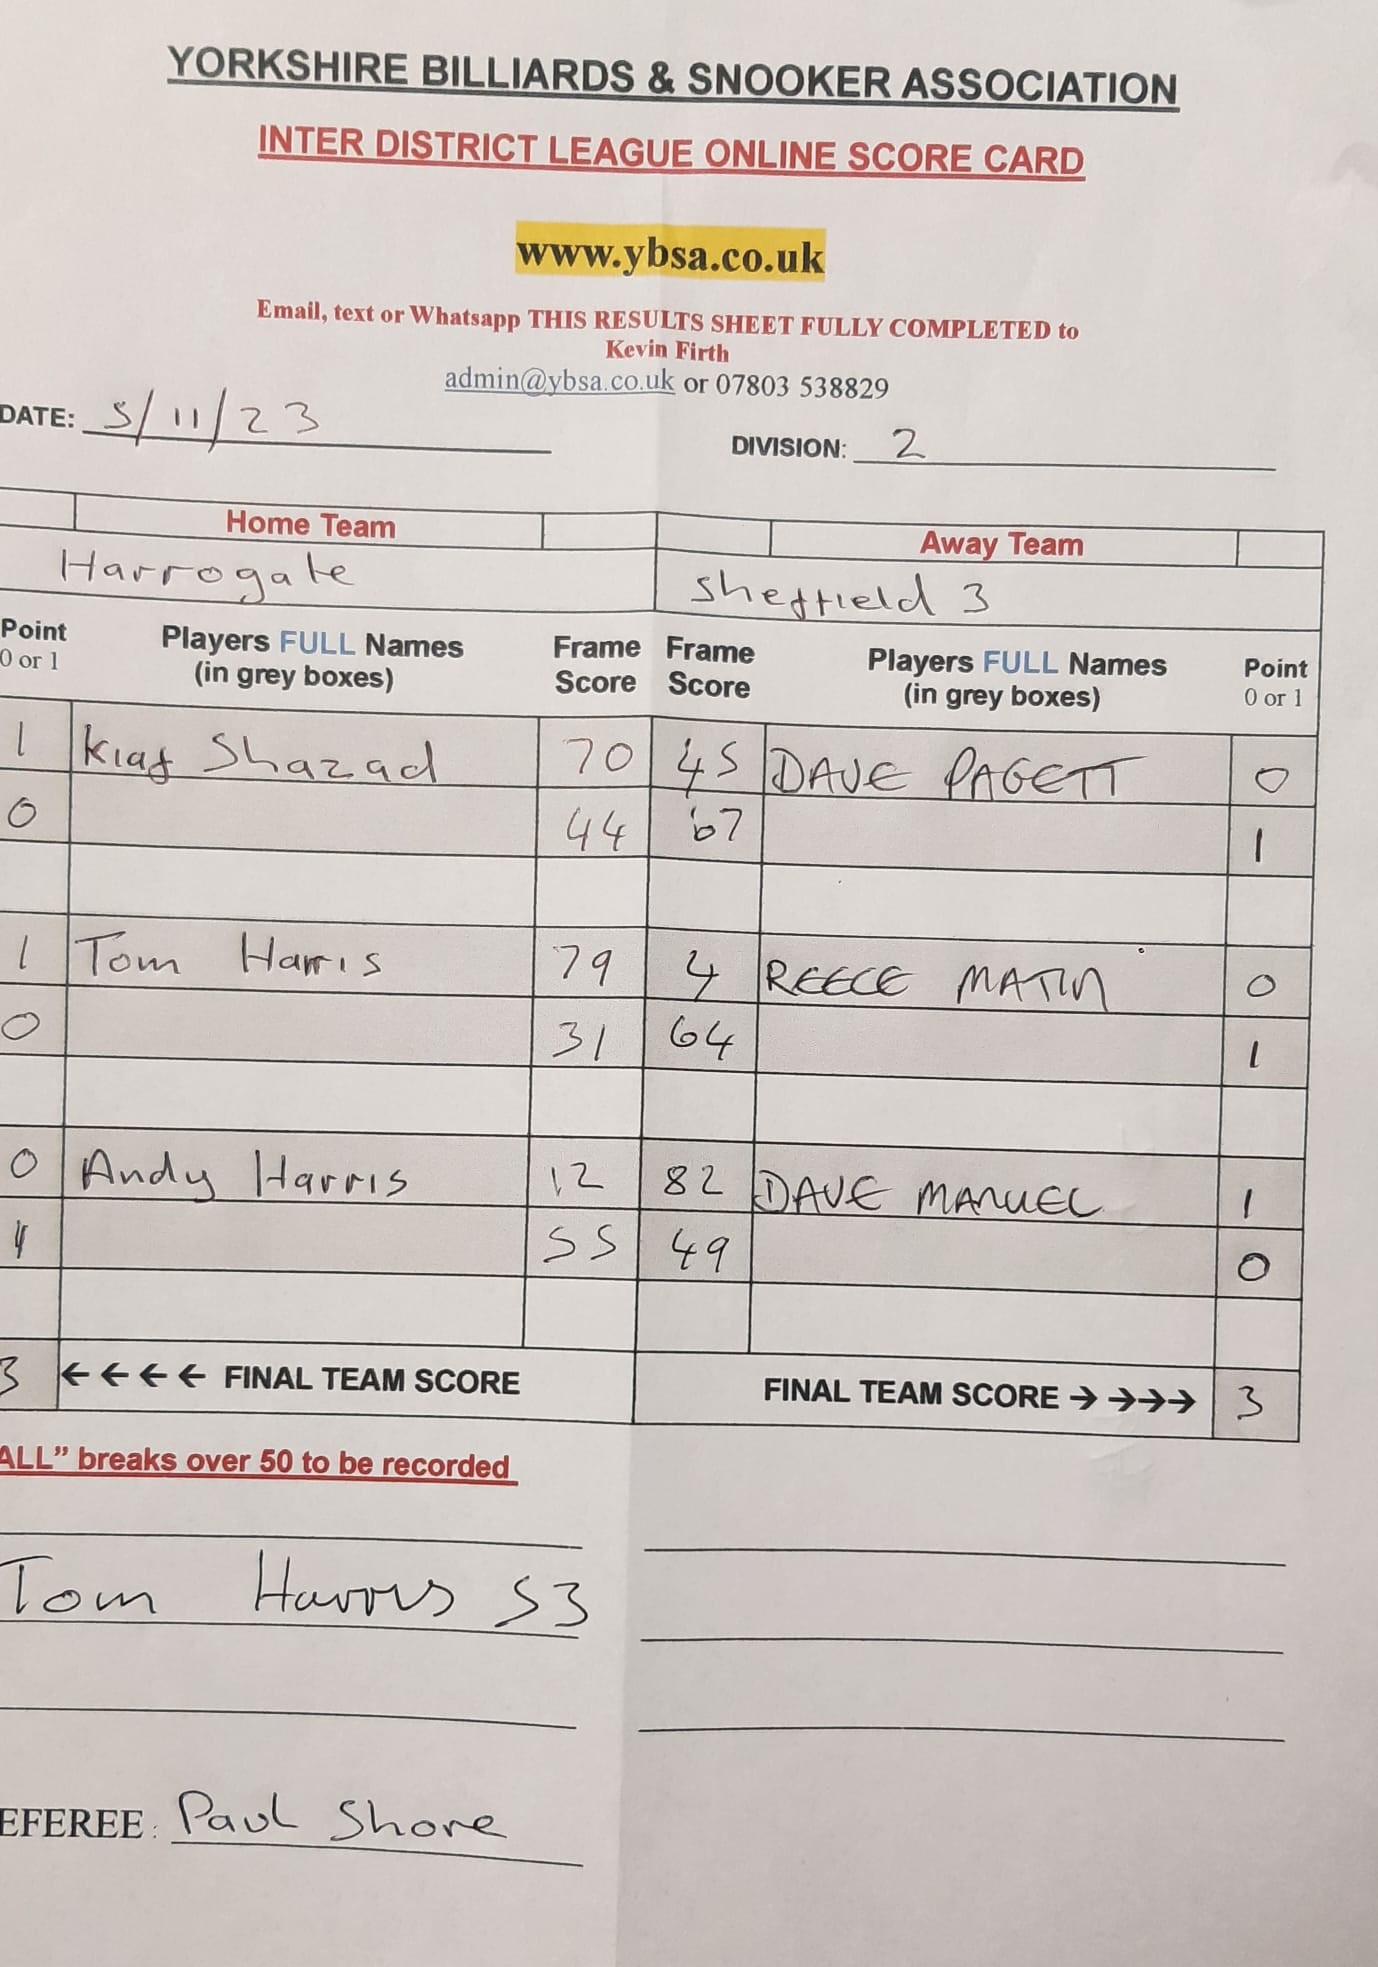 YORKSHIRE BILLIARDS & SNOOKER ASSOCIATION
INTER DISTRICT LEAGUE ONLINE SCORE CARD
www.ybsa.co.uk
Email, text or Whatsapp THIS RESULTS SHEET FULLY COMPLETED to
Kevin Firth
admin@ybsa.co.uk or 07803 538829
DATE: 5/11/23
DIVISION: 2
Home Team Away Team
Harrogate Sheffield 3
Point Players FULL Names Frame Frame Players FULL Names Point
0 or 1 (in grey boxes) Score Score (in grey boxes) 0 or 1
1 Shazad 70 45 DAVE PAGETT 0
0 44 67 1
1 Tom Harris 79 4 REECE MATIN 0
0 31 64 1
0 Andy Harris 12 82 DAVE MANUEL 1
1 55 49 0
3 ←←←← FINAL TEAM SCORE FINAL TEAM SCORE →→→→ 3
ALL” breaks over 50 to be recorded
Tom Harris 53
EFEREE: Paul Shore